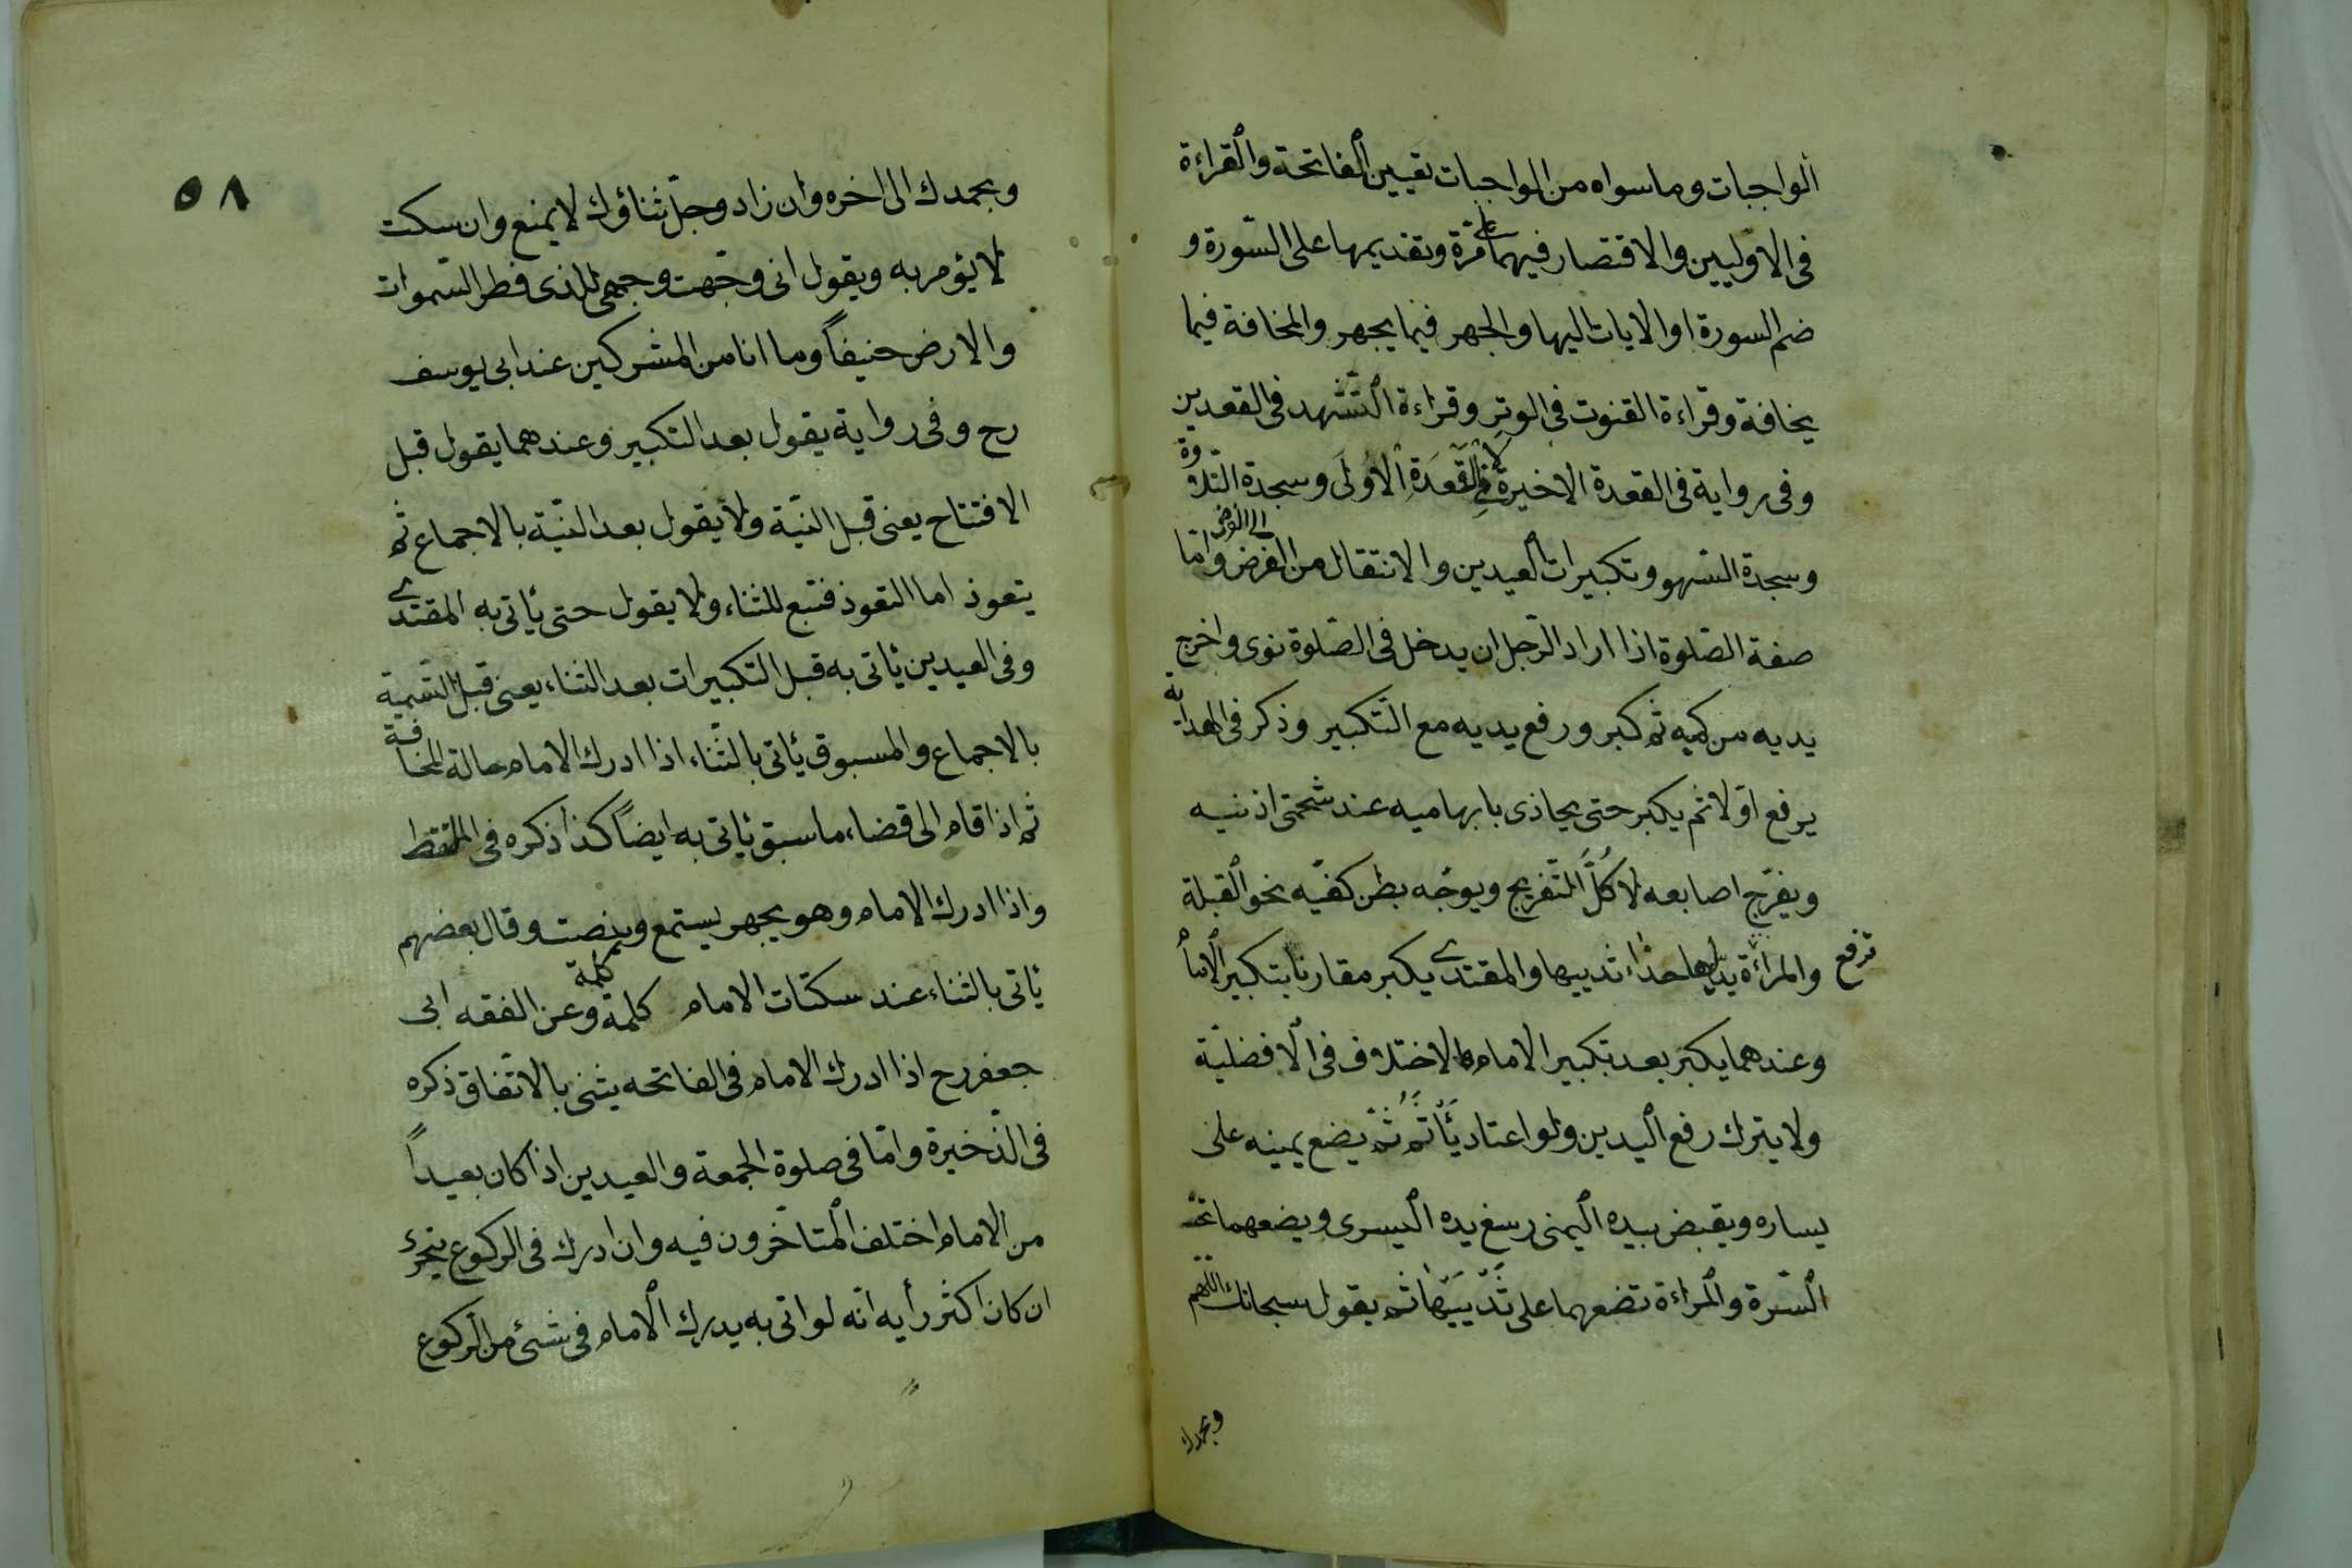 الواجبات وما سواه من الواجبات تعيين الفاتحة والقراءة
في الاوليين والاقتصار فيهما على مرّة وتقديمها على السّورة و
ضم السورة او الايات اليها والجهر فيما يجهر والمخافة فيما
يخافة وقراءة القنوت في الوتر وقراءة التشهد في القعدين
وفى رواية في القعدة الاخيرة لا في القَعدَةِ الاوُلَى وسجدة التّلاوة
وسجدة السّهو وتكبيرات العيدين والانتقال من الفرض الى الفرض وامّا
صفة الصّلوة اذا اراد الرّجل ان يدخل فى الصّلوة نوى واخرج
يديه من كميه ثم كبر ورفع يديه مع التّكبير وذكر فى الهداية
يرفع اوّلا ثم يكبر حتى يحاذى بابهاميه عند شحمتى اذنيه
ويفرّج اصابعه لا كُلَّ التّفريج ويوجّه بطن كفيّه نحو القبلة
والمراءة ترفع يديها حذاء ثدييها والمقتدى يكبر مقارنا بتكبير الامام
وعندهما يكبّر بعد تكبير الامام والاختلاف فى الافضليّة
ولا يترك رفع اليدين ولو اعتاد يَأثَمُ ثمّ يضع يمينه على
يساره ويقبض بيده اليمنى رسغ يده اليسرى ويضعهما تحت
السّرة والمراءة تضعهما على ثَدْيَيَهْا ثم يقول سبحانك اللّهم
وبحمدك
٥٨
وبحمدك الى اخره وان زاد وجلّ ثناؤك لا يمنع وان سكت
لا يؤمر به ويقول انى وجّهت وجهى للذى فطر السّموات
والارض حنيفاً وما انا من المشركين عند ابى يوسف
رح وفى رواية يقول بعد التكبير وعندهما يقول قبل
الافتتاح يعنى قبل النيّة ولا يقول بعد النيّة بالاجماع ثم
يتعوذ اما التعوذ فتبع للثناء ولا يقول حتى يأتى به المقتدى
وفى العيدين يأتى به قبل التكبيرات بعد الثناء يعنى قبل التّسمية
بالاجماع والمسبوق يأتى بالثّناء اذا ادرك الامام حالة المخافة
ثم اذا قام الى قضاء ما سبق يأتى به ايضاً كذا ذكره فى الملتقط
واذا ادرك الامام وهو يجهر يستمع وينصت وقال بعضهم
يأتى بالثناء عند سكتات الامام كلمة كلمة وعن الفقه ابى
جعفر رح اذا ادرك الامام فى الفاتحه يثنى بالاتفاق ذكره
فى الذّخيرة وامّا فى صلوة الجمعة والعيدين اذا كان بعيداً
من الامام اختلف المتاخّرون فيه وان ادرك فى الركوع يتحرّى
ان كان اكثر رأيه انّه لو اتى به يدرك الامام فى شئ من الرّكوع